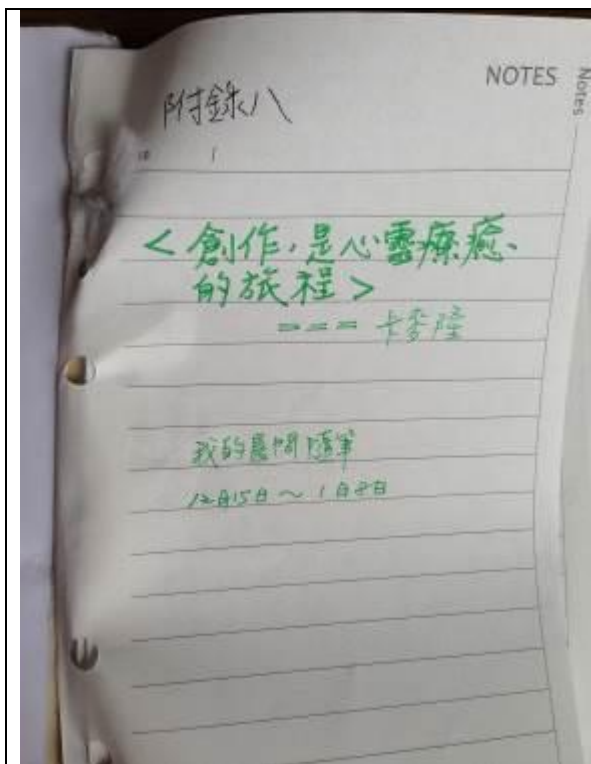 NOTES
Notes
附錄八
<創作,是心靈療癒
的旅程>
=== 卡麥隆
我的晨間隨筆
12月15日~1月8日